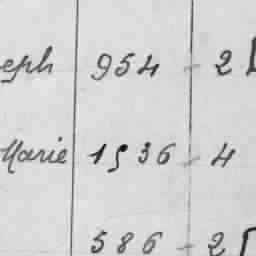 eph 954 - 2
Marie 1536 - 4
586 - 2